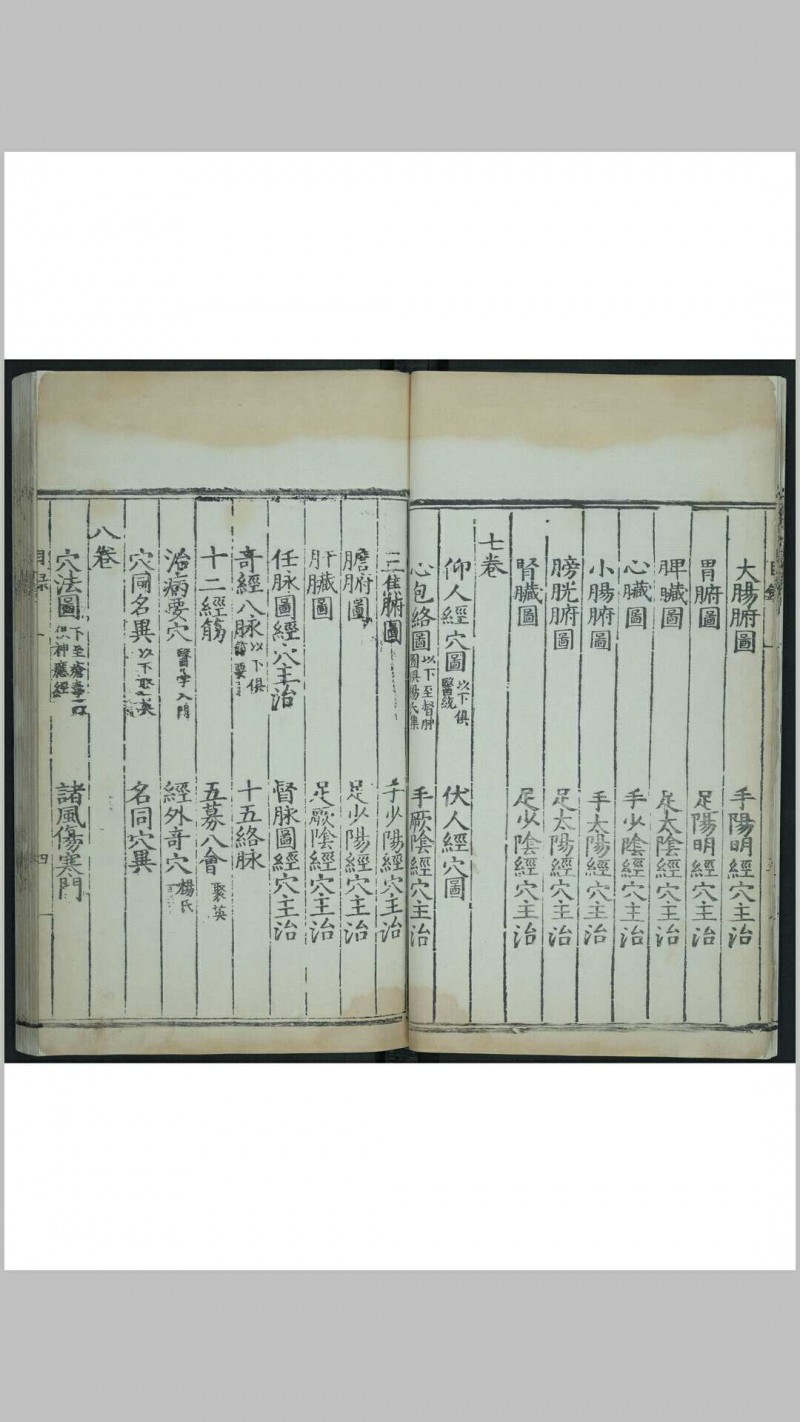 大腸腑圖　手陽明經穴主治
胃腑圖　足陽明經穴主治
脾臟圖　足太陰經穴主治
心臟圖　手少陰經穴主治
小腸腑圖　手太陽經穴主治
膀胱腑圖　足太陽經穴主治
腎臟圖　足少陰經穴主治
七卷
仰人經穴圖 以下俱醫統　伏人經穴圖
心包絡圖 以下至督脉圖俱楊氏集　手厥陰經穴主治
三焦腑圖　手少陽經穴主治
膽腑圖　足少陽經穴主治
肝臟圖　足厥陰經穴主治
任脉圖經穴主治　督脉圖經穴主治
奇經八脉 以下俱節要　十五絡脉
十二經筋　五募八會 聚英
治病要穴 醫學入門　經外奇穴 楊氏
穴同名異 以下聚英　名同穴異
八卷
穴法圖 下至瘡毒俱神應經　諸風傷寒門
目录　四